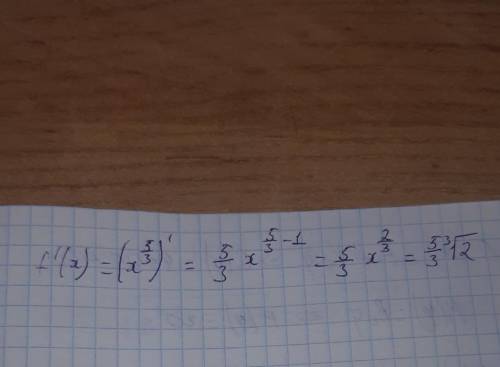 f'(x) = (x^{5/3})' = 5/3 x^{5/3 - 1} = 5/3 x^{2/3} = 5/3 ∛2